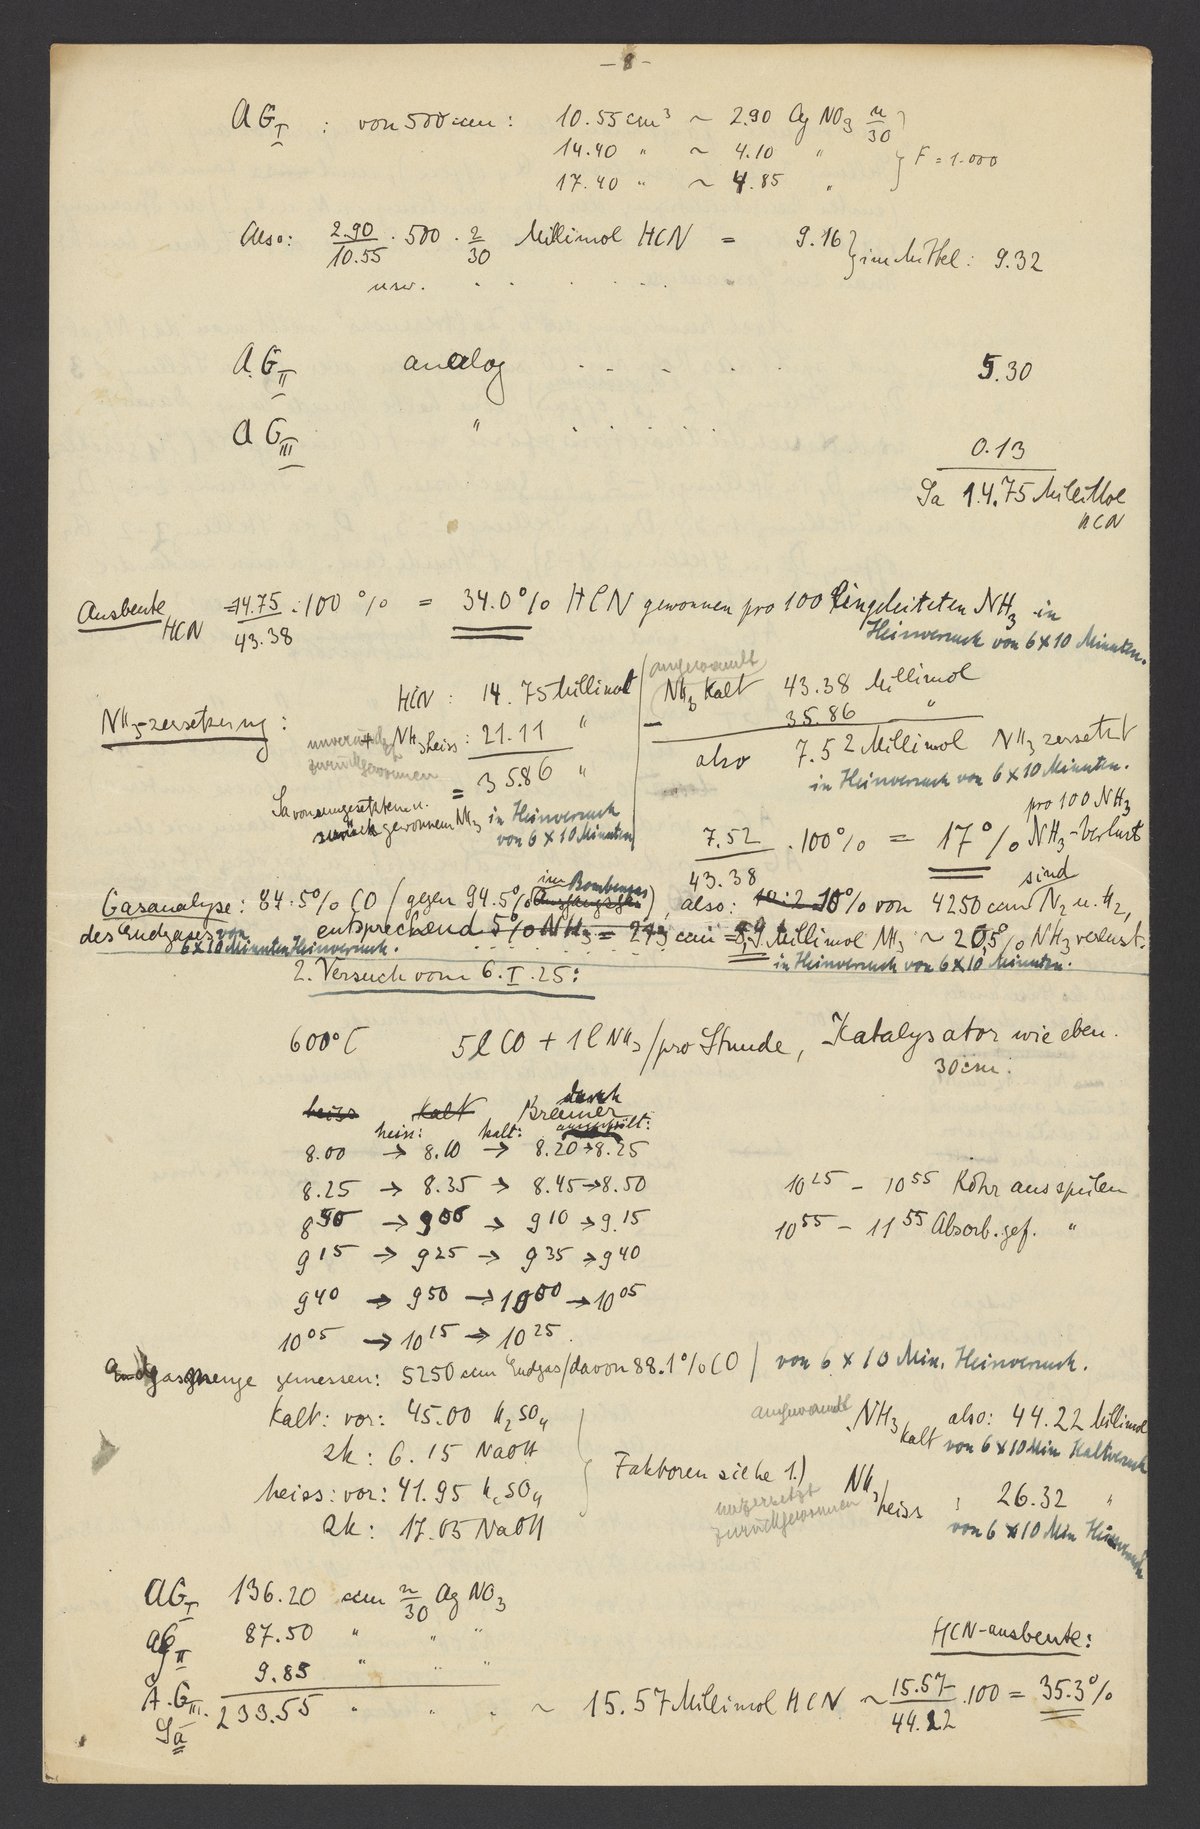 - 8 -
AG I : von 500 ccm : 10.55 cm³ ~ 2.90 AgNO3 n/30
14.40 " ~ 4.10 "
17.40 " ~ 4.85 " } F = 1.000
Also: 2.90/10.55 . 500 . 2/30 Millimol HCN = 9.16 } im Mittel: 9.32
usw. . . . . . .
A.G II analog . . . . . 5.30
A G III " . . . . . 0.13
Sa 14.75 Millimol
HCN
Ausbeute HCN = 14.75/43.38 . 100 % = 34.0% HCN gewonnen pro 100 eingeleiteten NH3 in
Heissversuch von 6 x 10 Minuten.
angewandt
HCN : 14.75 Millimol
NH3 Kalt 43.38 Millimol
NH3-zersetzung :
unverändert zurückgewonnen + NH3 heiss : 21.11 "
- 35.86 "
= 35.86 "
also 7.52 Millimol NH3 zersetzt
in Heissversuch von 6 x 10 Minuten.
Sa von umgesetztem u. zurückgewonnenem NH3
in Heissversuch
von 6 x 10 Minuten
7.52/43.38 . 100% = 17% NH3-Verlust
pro 100 NH3
sind
im Bombengas
Gasanalyse: 84.5% CO (gegen 94.5% Ausgangsgas), also: 10% von 4250 ccm N2 u. H2,
des Endgases von entsprechend 5% NH3 = 213 ccm = 8,9 Millimol NH3 ~ 20,5% NH3 verlust.
6 x 10 Minuten Heissversuch.
in Heissversuch von 6 x 10 Minuten.
2. Versuch vom 6.I.25:
600°C 5 l CO + 1 l NH3 / pro Stunde, Katalysator wie eben.
30 cm.
heiss kalt Bremer durch
heiss: kalt: ausgespült:
8.00 → 8.10 → 8.20 → 8.25
8.25 → 8.35 → 8.45 → 8.50
10 25 - 10 55 Rohr ausspülen
8 50 → 9 00 → 9 10 → 9.15
10 55 - 11 55 Absorb.gef. "
9 15 → 9 25 → 9 35 → 9 40
9 40 → 9 50 → 10 00 → 10 05
10 05 → 10 15 → 10 25.
Endgasmenge gemessen: 5250 ccm Endgas / davon 88.1% CO / von 6 x 10 Min. Heissversuch.
Kalt: vor: 45.00 H2SO4
angewandt NH3 kalt also: 44.22 Millimol
von 6 x 10 Min Kaltversuch
zk: 6.15 NaOH
Faktoren siehe 1.)
heiss: vor: 41.95 H2SO4
unzersetzt zurückgewonnen NH3 heiss : 26.32 "
von 6 x 10 Min Heissversuch
zk: 17.05 NaOH
AG I 136.20 ccm n/30 AgNO3
AG II 87.50 " " "
A.G III. 9.85 " " "
HCN-ausbeute:
Sa 233.55 " " " ~ 15.57 Millimol HCN ~ 15.57/44.22 . 100 = 35.3%